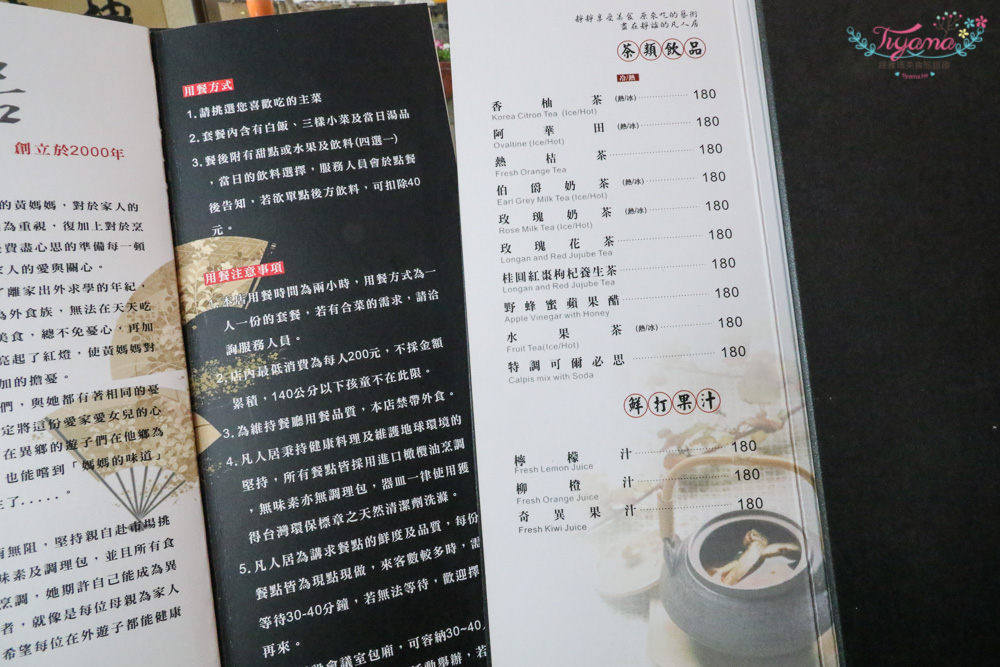 創立於2000年
的黃媽媽，對於家人的
為重視，復加上對於烹
費盡心思的準備每一頓
家人的愛與關心。
了離家出外求學的年紀，
為外食族，無法在天天吃
美食，總不免憂心，再加
亮起了紅燈，使黃媽媽對
加的擔憂。
們，與她都有著相同的憂
定將這份愛家愛女兒的心
在異鄉的遊子們在他鄉為
也能嚐到「媽媽的味道」
生了.....。
雨無阻，堅持親自赴市場挑
味素及調理包，並且所有食
烹調，她期許自己能成為異
者，就像是每位母親為家人
希望每位在外遊子都能健康
用餐方式
1.請挑選您喜歡吃的主菜
2.套餐內含有白飯、三樣小菜及當日湯品
3.餐後附有甜點或水果及飲料(四選一)
，當日的飲料選擇，服務人員會於點餐
後告知，若欲單點後方飲料，可扣除40
元。
用餐注意事項
1.本店用餐時間為兩小時，用餐方式為一
人一份的套餐，若有合菜的需求，請洽
詢服務人員。
2.店內最低消費為每人200元，不採金額
累積，140公分以下孩童不在此限。
3.為維持餐廳用餐品質，本店禁帶外食。
4.凡人居秉持健康料理及維護地球環境的
堅持，所有餐點皆採用進口橄欖油烹調
，無味素亦無調理包，器皿一律使用獲
得台灣環保標章之天然清潔劑洗滌。
5.凡人居為講求餐點的鮮度及品質，每份
餐點皆為現點現做，來客數較多時，需
等待30-40分鐘，若無法等待，歡迎擇
再來。
會議室包廂，可容納30~40人
活動舉辦，若
靜靜享受美食 原來吃的藝術
盡在靜謐的凡人居
茶類飲品
冷/熱
香柚茶(熱/冰) 180
Korea Citron Tea (Ice/Hot)
阿華田(熱/冰) 180
Ovaltine (Ice/Hot)
熱桔茶 180
Fresh Orange Tea
伯爵奶茶(熱/冰) 180
Earl Grey Milk Tea (Ice/Hot)
玫瑰奶茶(熱/冰) 180
Rose Milk Tea (Ice/Hot)
玫瑰花茶 180
Longan and Red Jujube Tea
桂圓紅棗枸杞養生茶 180
Longan and Red Jujube Tea
野蜂蜜蘋果醋 180
Apple Vinegar with Honey
水果茶(熱/冰) 180
Fruit Tea(Ice/Hot)
特調可爾必思 180
Calpis mix with Soda
鮮打果汁
檸檬汁 180
Fresh Lemon Juice
柳橙汁 180
Fresh Orange Juice
奇異果汁 180
Fresh Kiwi Juice
Tiyama
Tiyama.tw